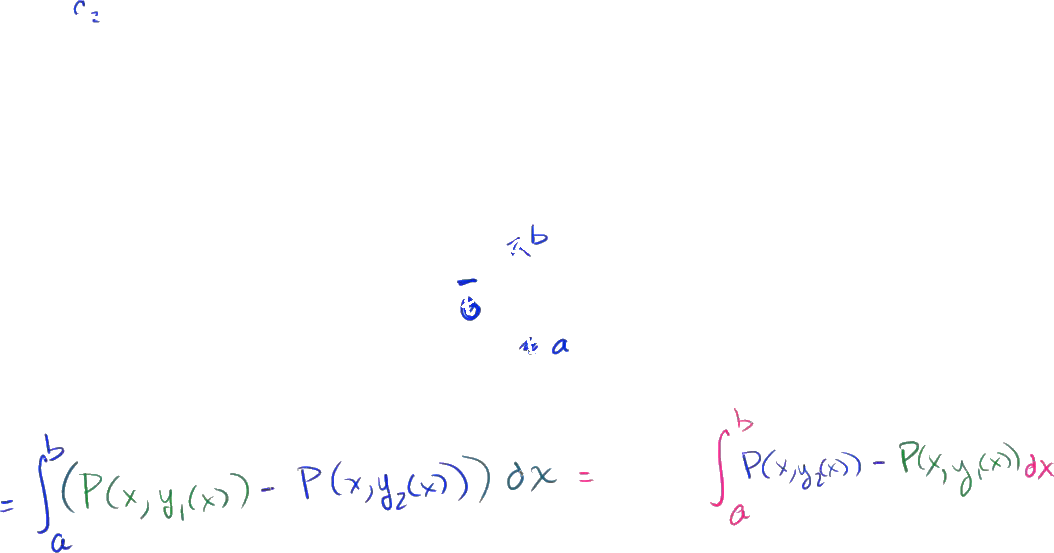 C₂
b
a
= ∫_a^b (P(x, y₁(x)) - P(x, y₂(x))) dx = ∫_a^b P(x, y₂(x)) - P(x, y₁(x)) dx